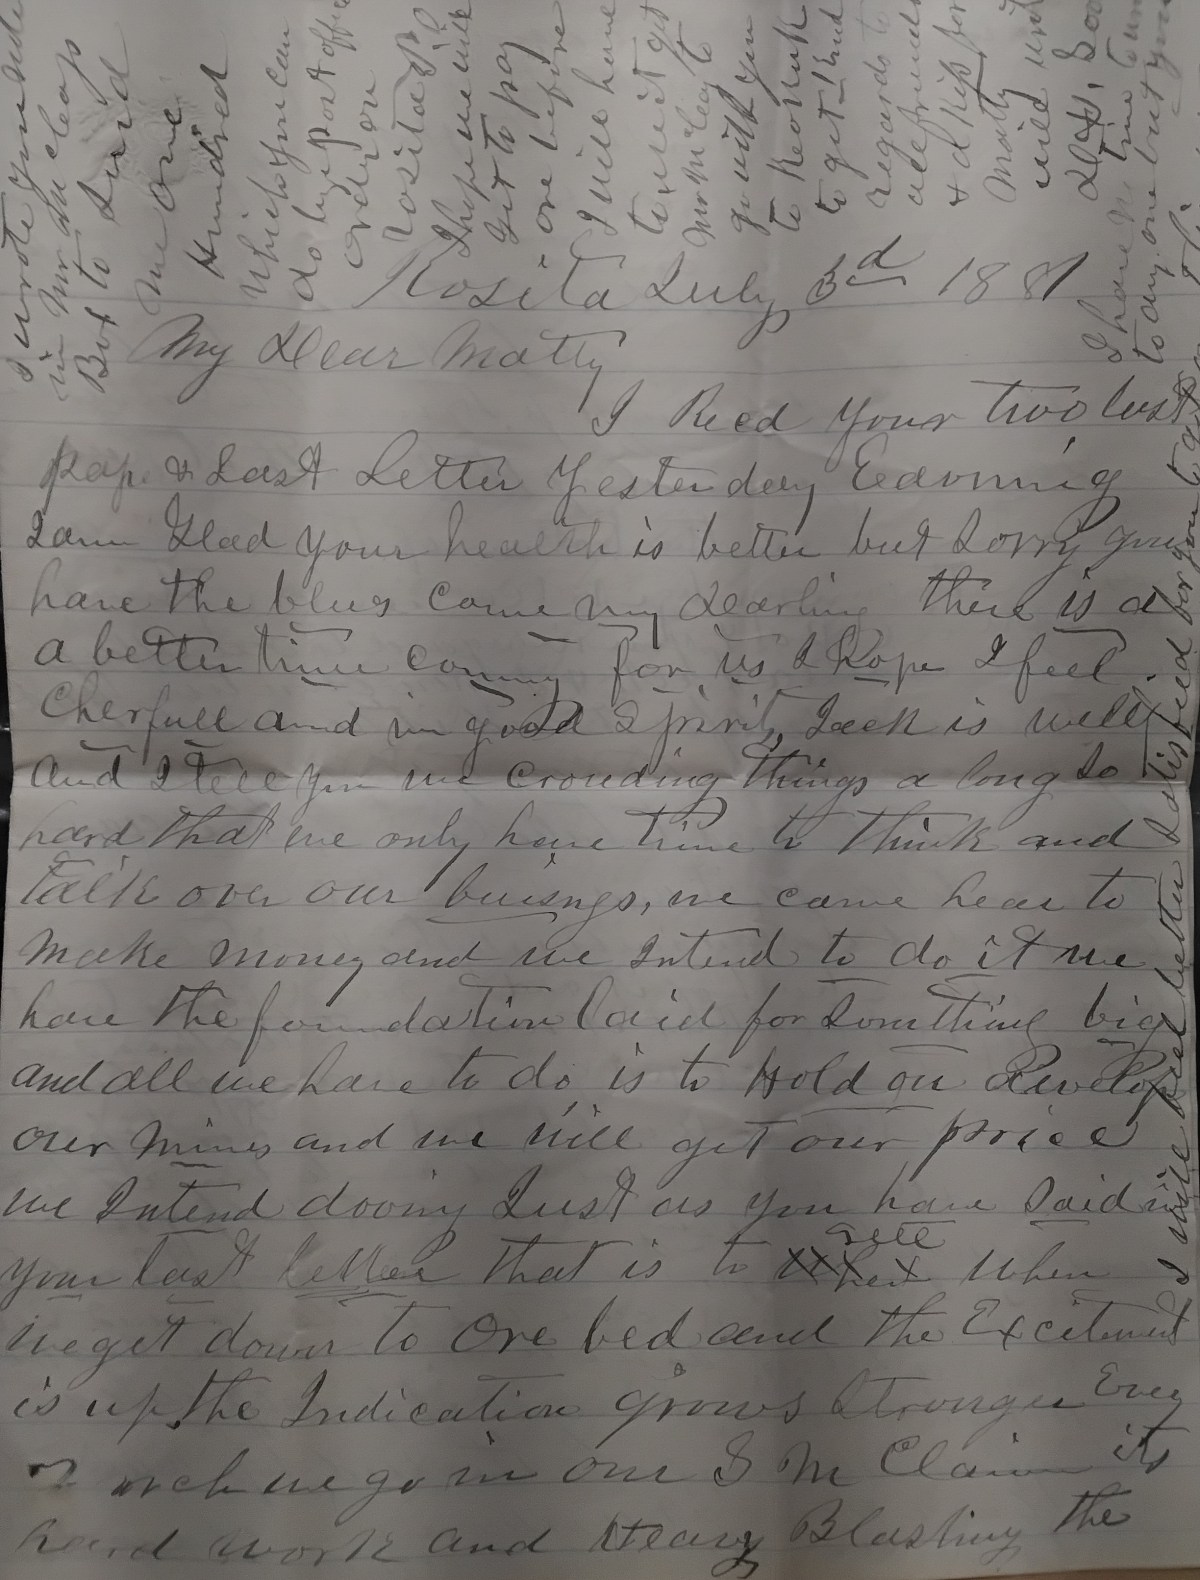 Rosita July 3rd 1881
My Dear Matty
I Recd your two last
pap. & Last Letter Yesterday Eavning
I am Glad your health is better but Sorry you
have the blues come my dearling there is a
a better time coming for us I Hope I feel
Cherfull and in good Spirit, Jack is well
and I tell you we crouding things a long so
hard that we only have time to think and
talk over our buisngs, we came hear to
make money and we Intend to do it we
have the foundation laid for Something big
and all we have to do is to Hold on Develop
our Mines and we will get our price
we Intend dooing Just as you have Said in
your last letter that is to sell when
we get down to Ore bed and the Excitement
is up, the Indication grows Stronger Evey
inch we go in our S M Claim its
hard work and Heavy Blasting the
I wrote you
in Mr
But to Send
me One
Hundred
which you can
do by post office
order on
Rosita P
I hope we will
get to pay
ore before
I will have
to
Mr McLea to
go with you
to Keokuk
to get
regards to
all friends
& a Kiss for
Matty
will
I have no time to
to any one but you
I will feel better Satisfied for you to